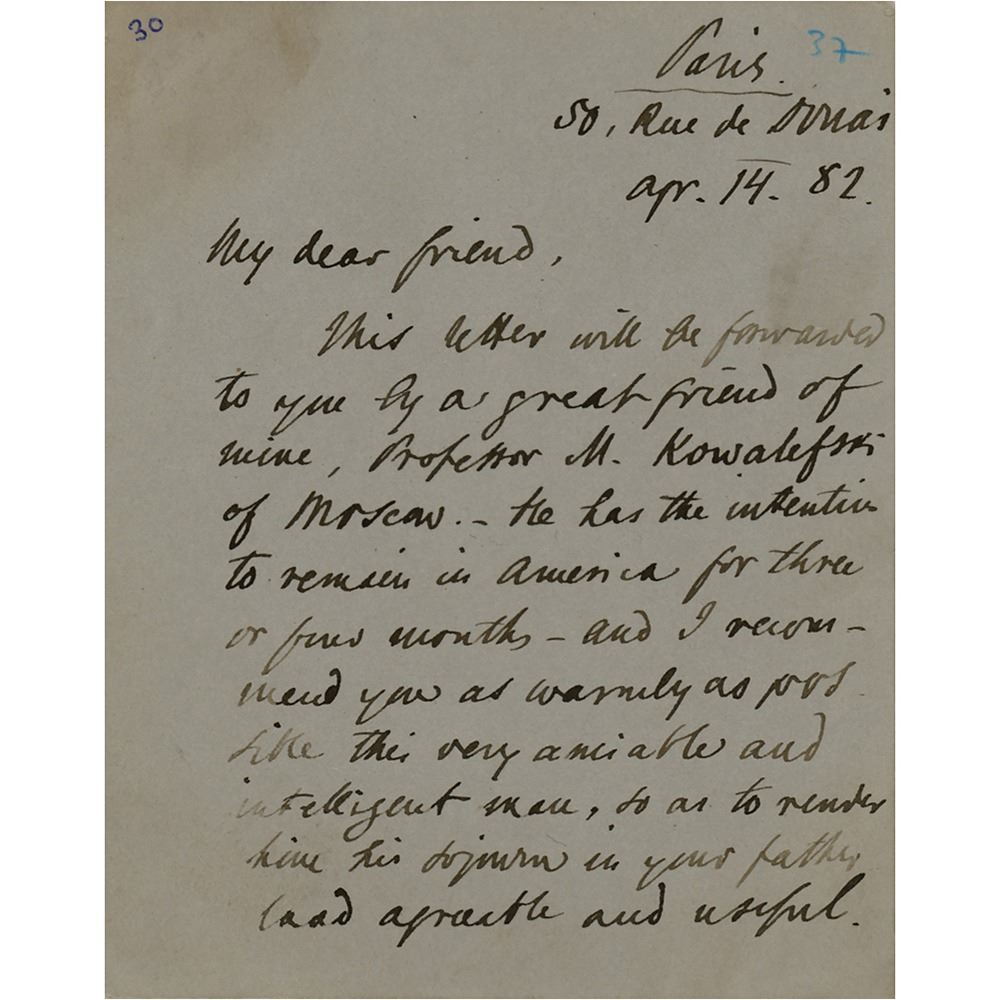 30
37
Paris.
50, Rue de Douai
apr. 14. 82.
My dear friend,
This letter will be forwarded
to you by a great friend of
mine, Professor M. Kowalefski
of Moscow. - He has the intention
to remain in America for three
or four months - and I recom-
mend you as warmly as pos
sible this very amiable and
intelligent man, so as to render
him his sojourn in your father
land agreable and useful.